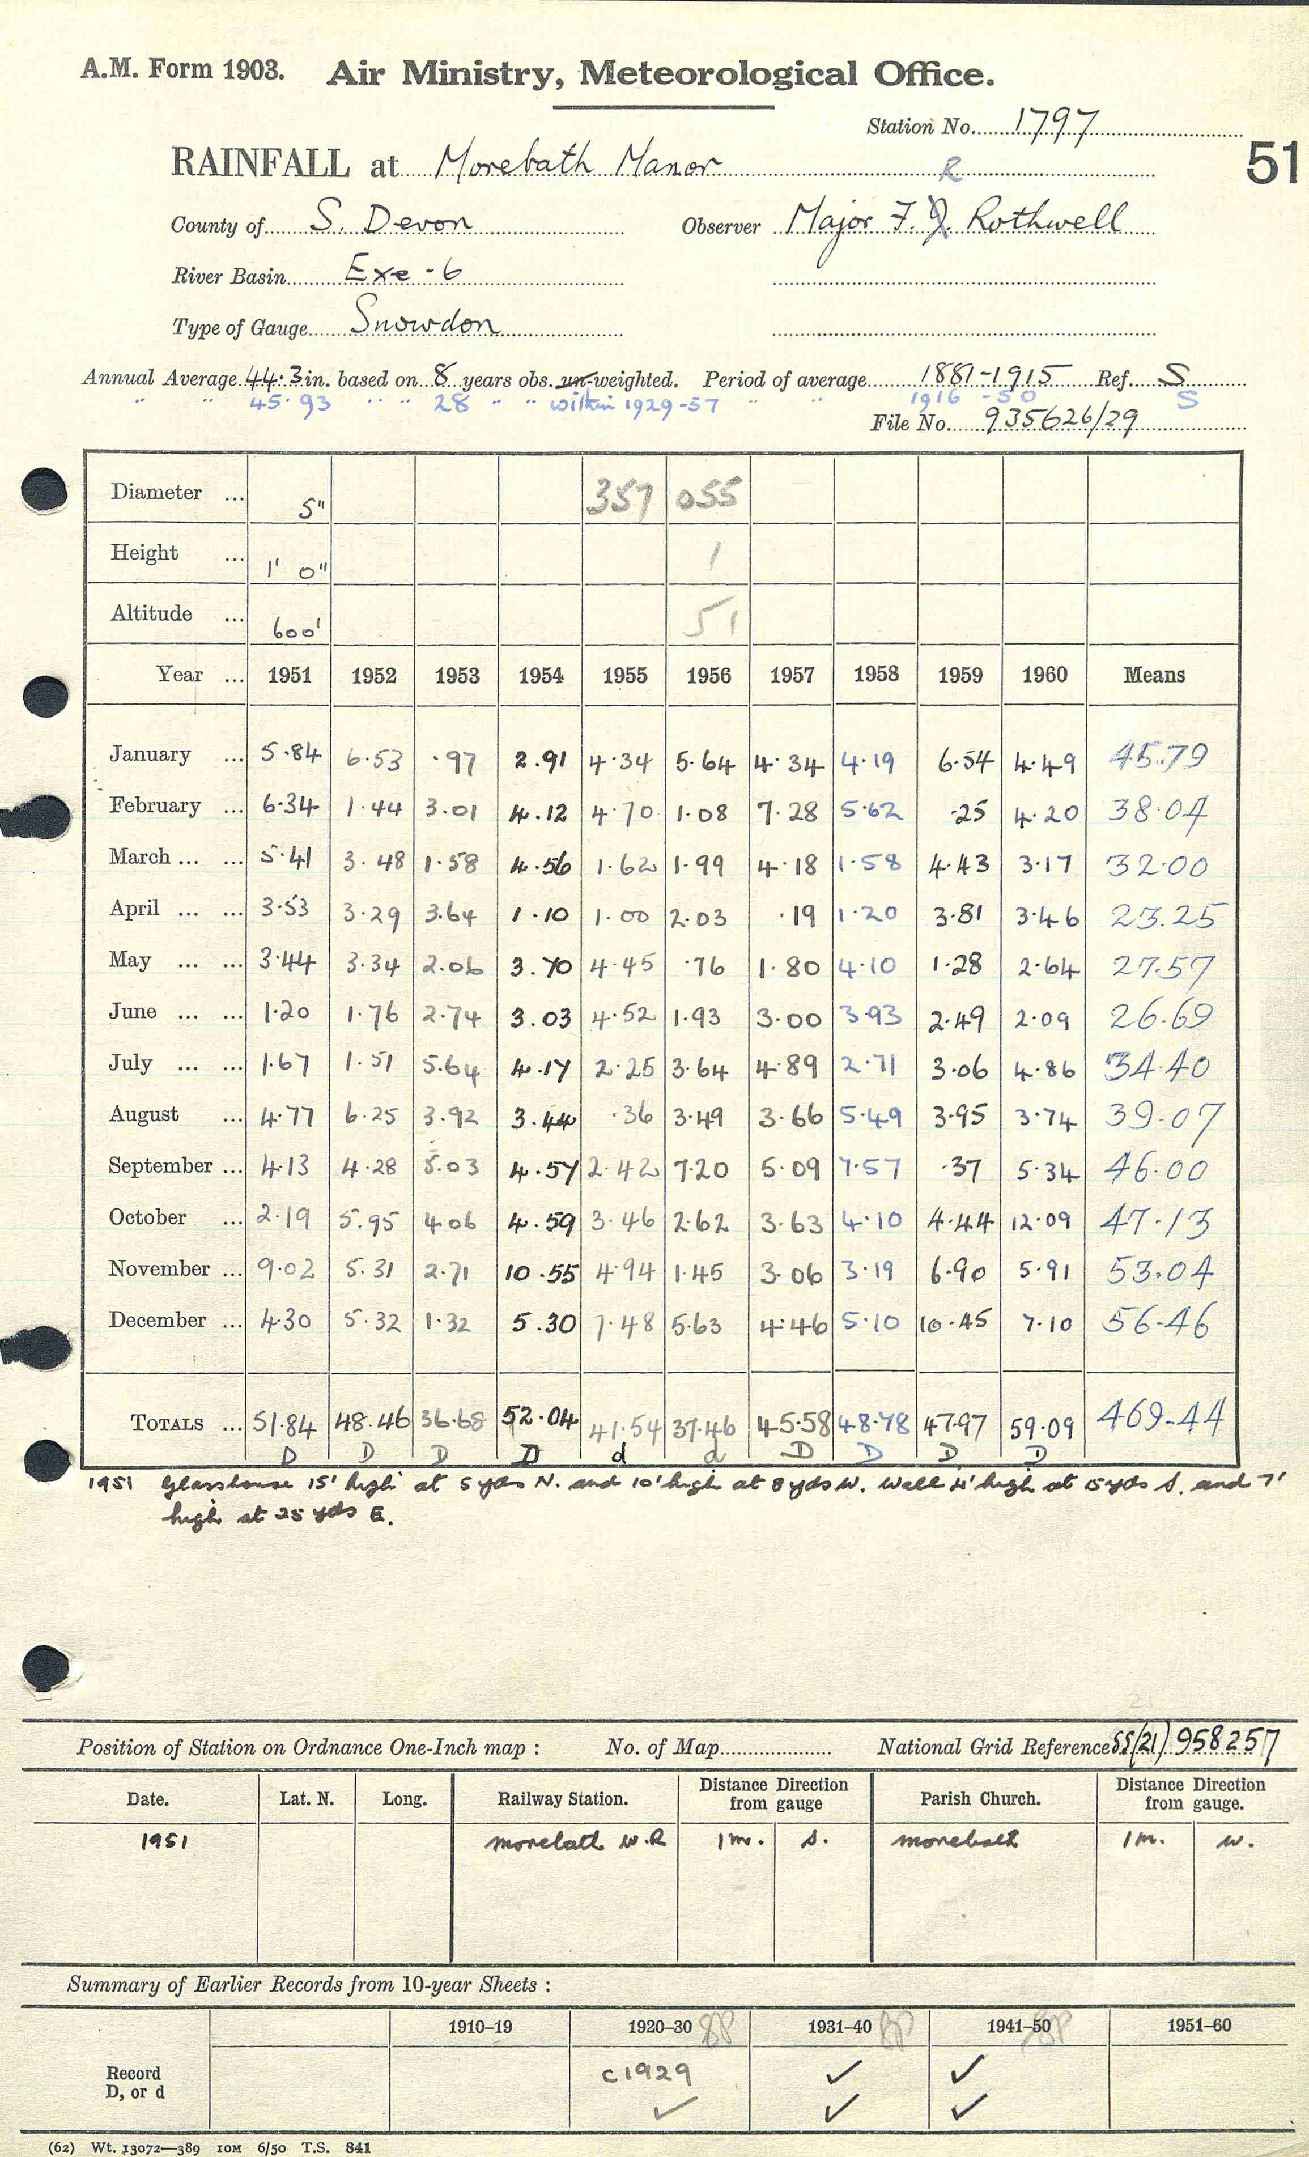 A.M. Form 1903. Air Ministry, Meteorological Office.
Station No. 1797
51
RAINFALL at Morebath Manor
R
County of S. Devon Observer Major F. J. Rothwell
River Basin Exe - 6
Type of Gauge Snowdon
Annual Average 44.3 in. based on 8 years obs. un-weighted. Period of average 1881-1915 Ref. S
" " 45.93 " " 28 " " within 1929-57 " " 1916-50 S
File No. 935626/29
Diameter ... 5" 357 055
Height ... 1' 0" 1
Altitude ... 600' 51
Year ... 1951 1952 1953 1954 1955 1956 1957 1958 1959 1960 Means
January ... 5.84 6.53 .97 2.91 4.34 5.64 4.34 4.19 6.54 4.49 45.79
February ... 6.34 1.44 3.01 4.12 4.70 1.08 7.28 5.62 .25 4.20 38.04
March ... ... 5.41 3.48 1.58 4.56 1.62 1.99 4.18 1.58 4.43 3.17 32.00
April ... ... 3.53 3.29 3.64 1.10 1.00 2.03 .19 1.20 3.81 3.46 23.25
May ... ... 3.44 3.34 2.06 3.70 4.45 .76 1.80 4.10 1.28 2.64 27.57
June ... ... 1.20 1.76 2.74 3.03 4.52 1.93 3.00 3.93 2.49 2.09 26.69
July ... ... 1.67 1.51 5.64 4.17 2.25 3.64 4.89 2.71 3.06 4.86 34.40
August ... 4.77 6.25 3.92 3.44 .36 3.49 3.66 5.49 3.95 3.74 39.07
September ... 4.13 4.28 5.03 4.57 2.42 7.20 5.09 7.57 .37 5.34 46.00
October ... 2.19 5.95 4.06 4.59 3.46 2.62 3.63 4.10 4.44 12.09 47.13
November ... 9.02 5.31 2.71 10.55 4.94 1.45 3.06 3.19 6.90 5.91 53.04
December ... 4.30 5.32 1.32 5.30 7.48 5.63 4.46 5.10 10.45 7.10 56.46
TOTALS ... 51.84 48.46 36.68 52.04 41.54 37.46 45.58 48.78 47.97 59.09 469.44
D D D D d d D D D D
1951 Glasshouse 15' high at 5 yds N. and 10' high at 8 yds W. Wall 4' high at 15 yds S. and 7'
high at 25 yds E.
Position of Station on Ordnance One-Inch map : No. of Map National Grid Reference SS/(21) 958257
Date. Lat. N. Long. Railway Station. Distance Direction from gauge Parish Church. Distance Direction from gauge.
1951 Morebath W.R 1m. S. Morebath 1m. W.
Summary of Earlier Records from 10-year Sheets :
1910–19 1920–30 1931–40 1941–50 1951–60
Record c1929 ✓ ✓
D, or d ✓ ✓ ✓
(62) Wt. 13072—389 10M 6/50 T.S. 841